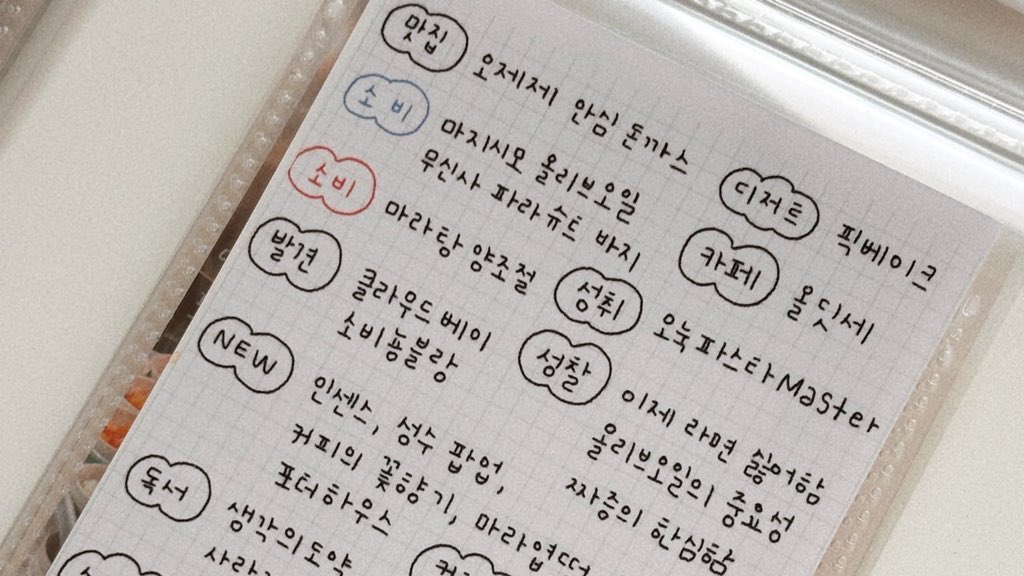 맛집 오제제 안심 돈까스
소비 마지시모 올리브오일
무신사 파라슈트 바지
소비 마라탕 양조절
발견 클라우드 베이
소비뇽블랑
NEW 인센스, 성수 팝업,
커피의 꽃향기, 마라엽떠
포터하우스
독서 생각의도약
디저트 픽베이크
카페 올딧세
성취 오눅파스타Master
성찰 이제 라면 싫어함
올리브오일의 중요성
짜증의 한심함